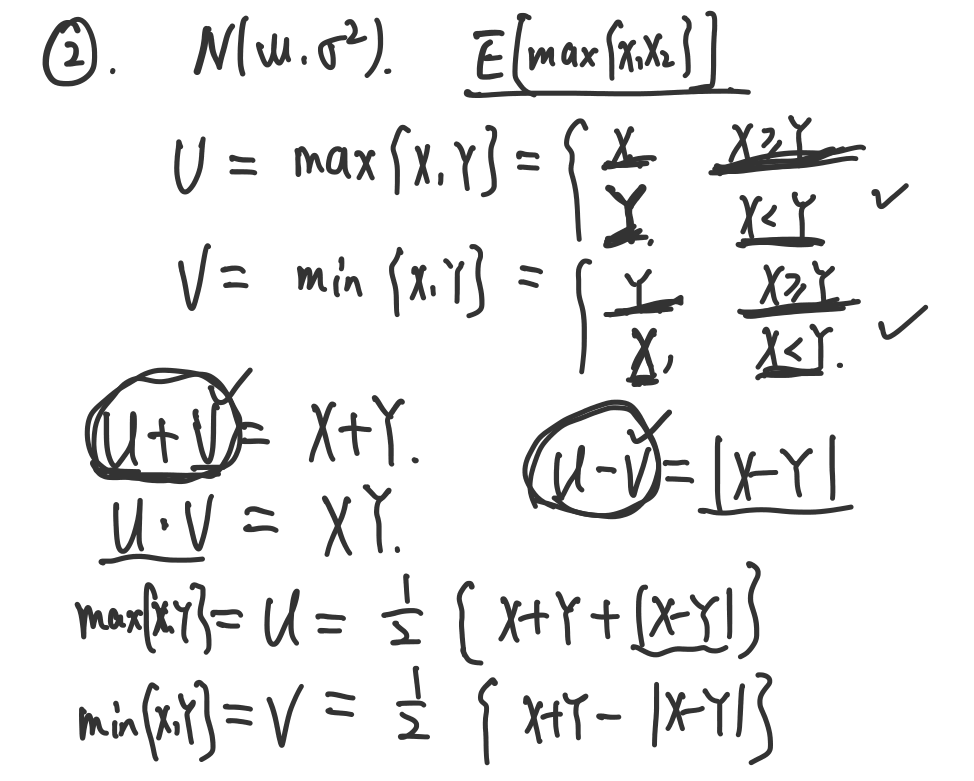 ②. N(μ.σ²). E[max{X₁X₂}]
U = max{X,Y} = { X X≥Y
Y. X<Y ✓
V = min{X,Y} = { Y X≥Y
X, X<Y. ✓
U+V ✓ = X+Y. U-V ✓ = |X-Y|
U·V = XY.
max{X,Y} = U = 1/2 {X+Y+|X-Y|}
min{X,Y} = V = 1/2 {X+Y-|X-Y|}